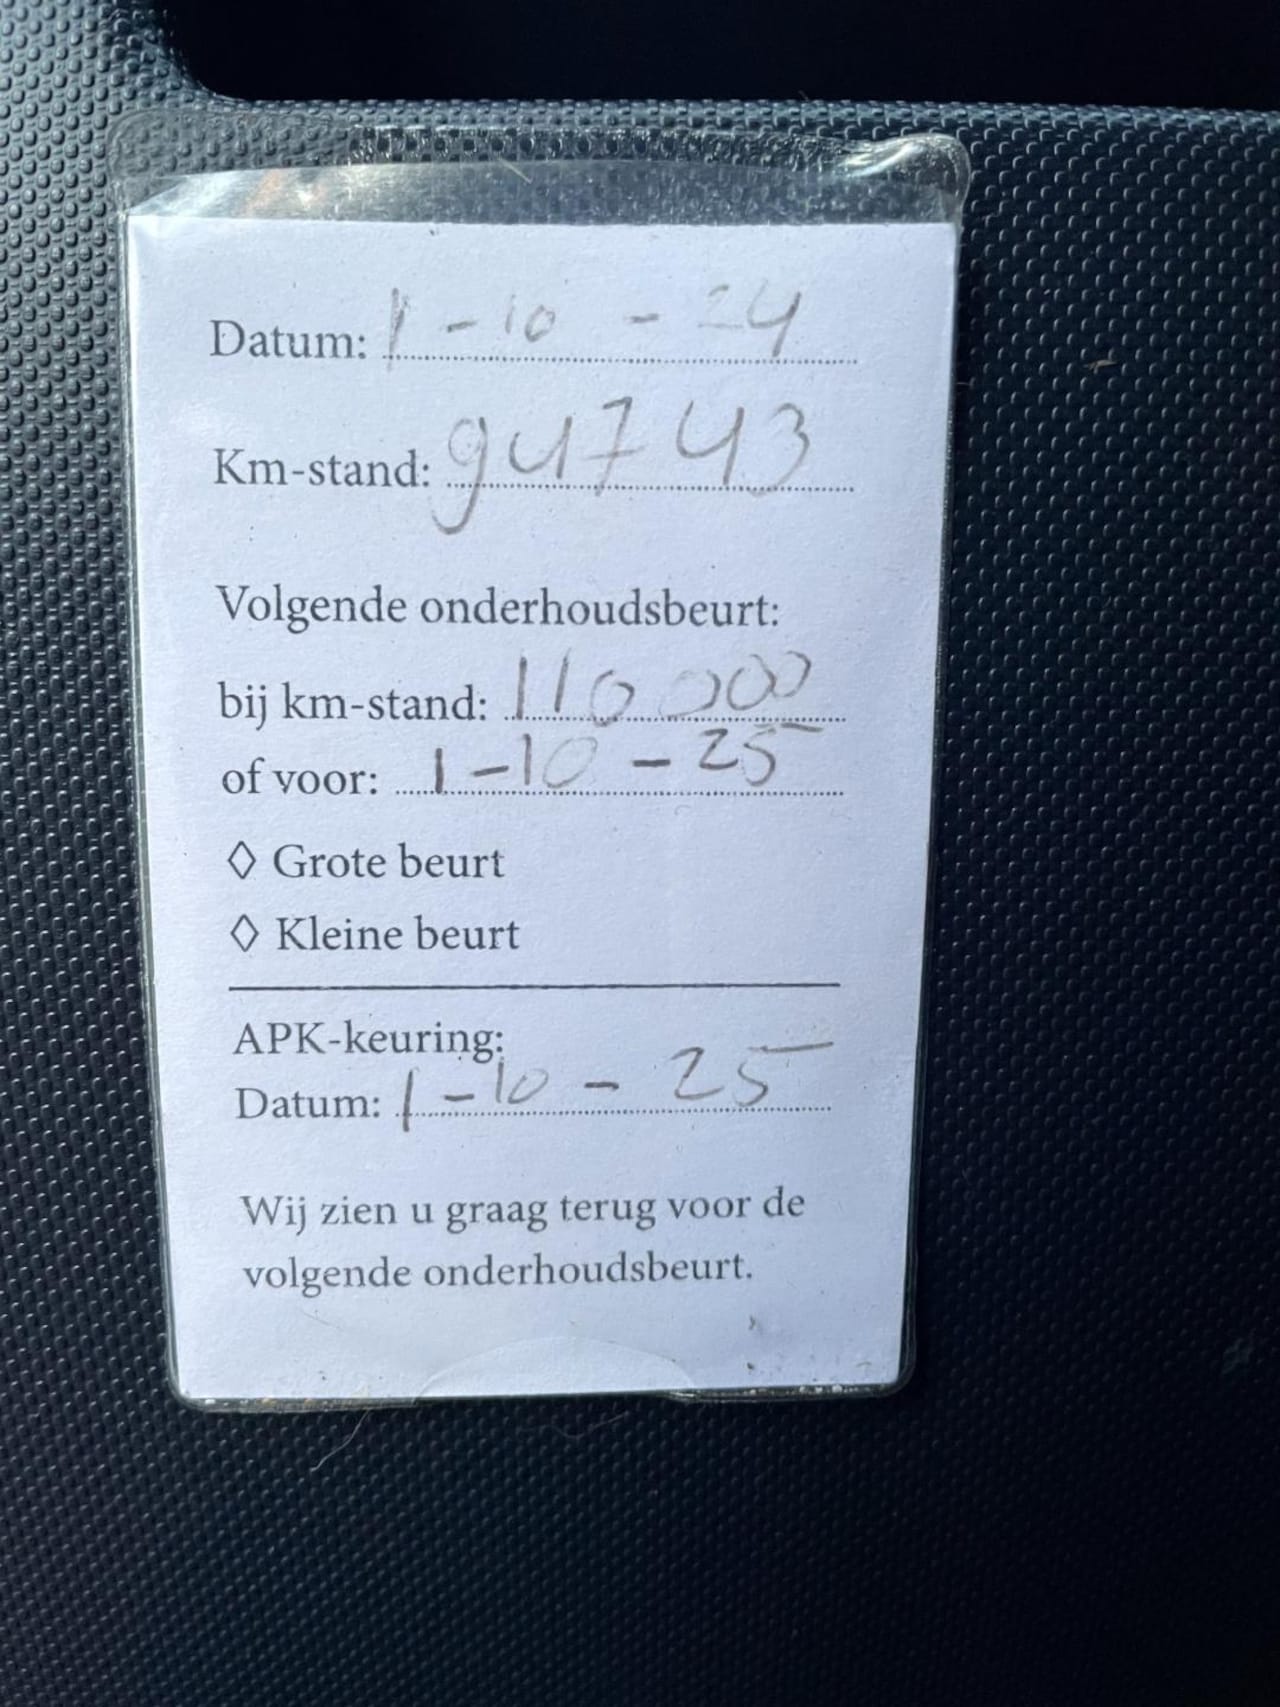 Datum: 1 - 10 - 24
Km-stand: 94743
Volgende onderhoudsbeurt:
bij km-stand: 110 000
of voor: 1 - 10 - 25
◊ Grote beurt
◊ Kleine beurt
APK-keuring:
Datum: 1 - 10 - 25
Wij zien u graag terug voor de
volgende onderhoudsbeurt.